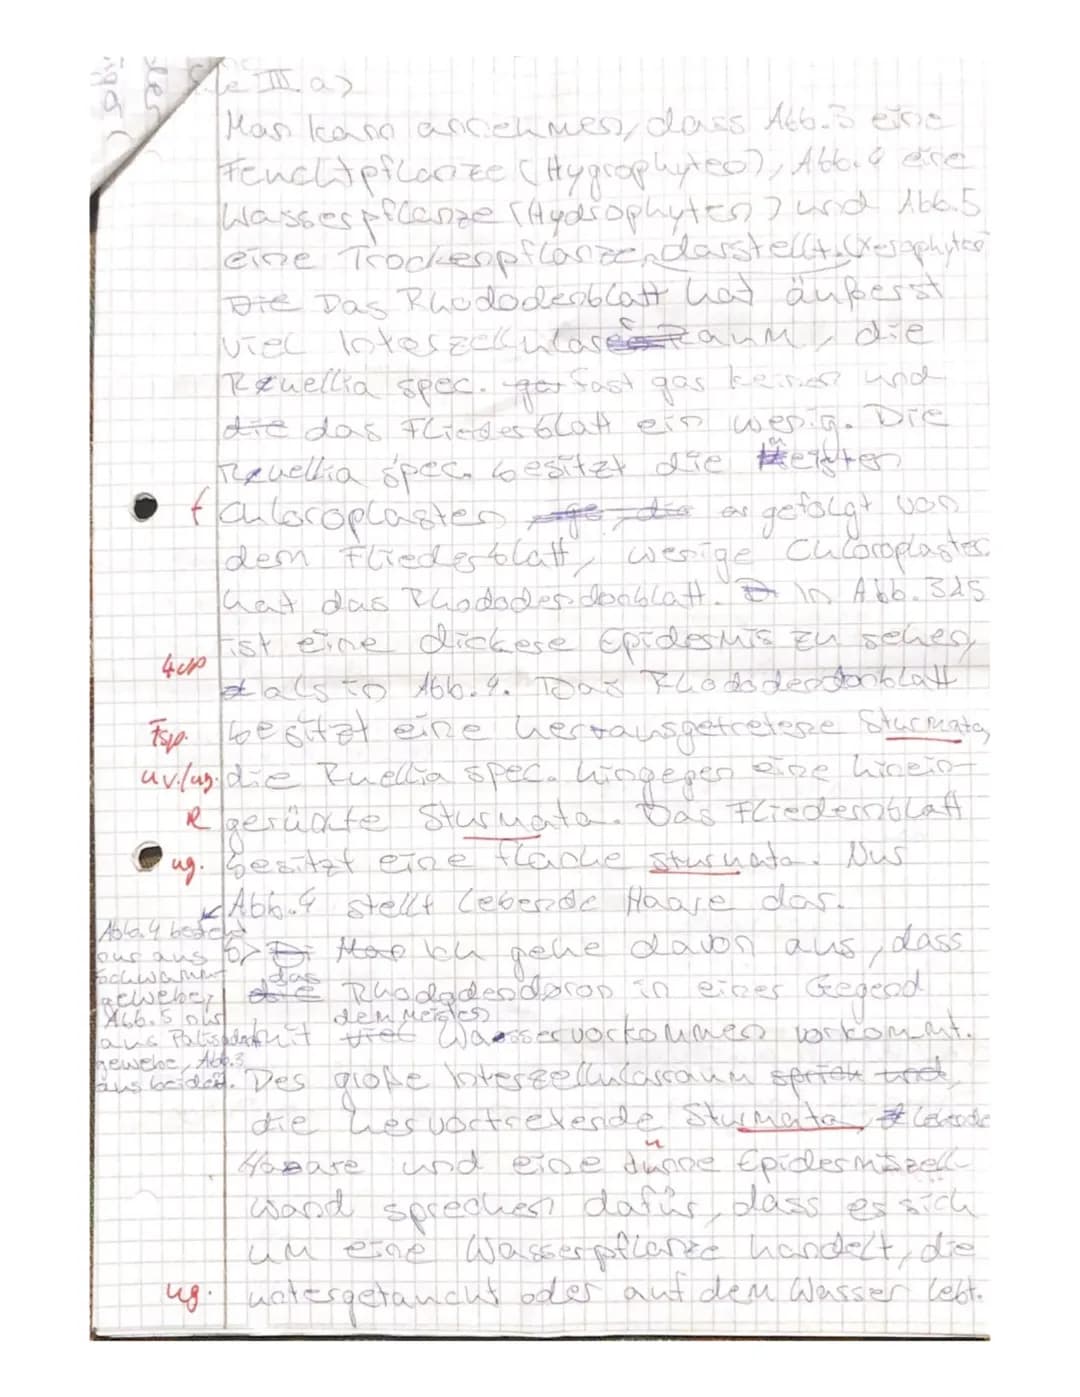 III a)
Man kann annehmen, dass Abb. 3 eine
Feuchtpflanze (Hygrophyten), Abb. 4 eine
Wasserpflanze (Hydrophyten) und Abb. 5
eine Trockenpflanze darstellt. (Xerophyten
Die Das Rhododenblatt hat äußerst
viel Interzellularraum, die
Ruellia spec. gar fast gar keinen und
die das Fliederblatt ein wenig. Die
Ruellia spec. besitzt die meisten
f Chloroplasten gefolgt von
dem Fliederblatt, wenige Chloroplasten
hat das Rhododendonblatt. In Abb. 3&5
ist eine dickere Epidermis zu sehen,
als in Abb. 4. Das Rhododendonblatt
Fsp. besitzt eine herrausgetretene Sturmata,
uv./ug. die Ruellia spec. hingegen eine hinein-
R gerückte Sturmata. Das Fliedernblatt
ug. besitzt eine flache Sturmata. Nur
Abb. 4 stellt lebende Haare dar.
Abb. 4 besteht
nur aus
Schwamm
gewebe,
Abb. 5 nur
aus Palisaden
gewebe, Abb. 3
aus beiden.
b) Man Ich gehe davon aus, dass
das Rhododendoron in einer Gegend
mit viel dem meisten Wasservorkommen vorkommt.
Der große Interzellularraum
die hervortretende Sturmata, lebende
Haare und eine dünne Epidermiszell-
wand sprechen dafür, dass es sich
um eine Wasserpflanze handelt, die
ug. untergetaucht oder auf dem Wasser lebt.